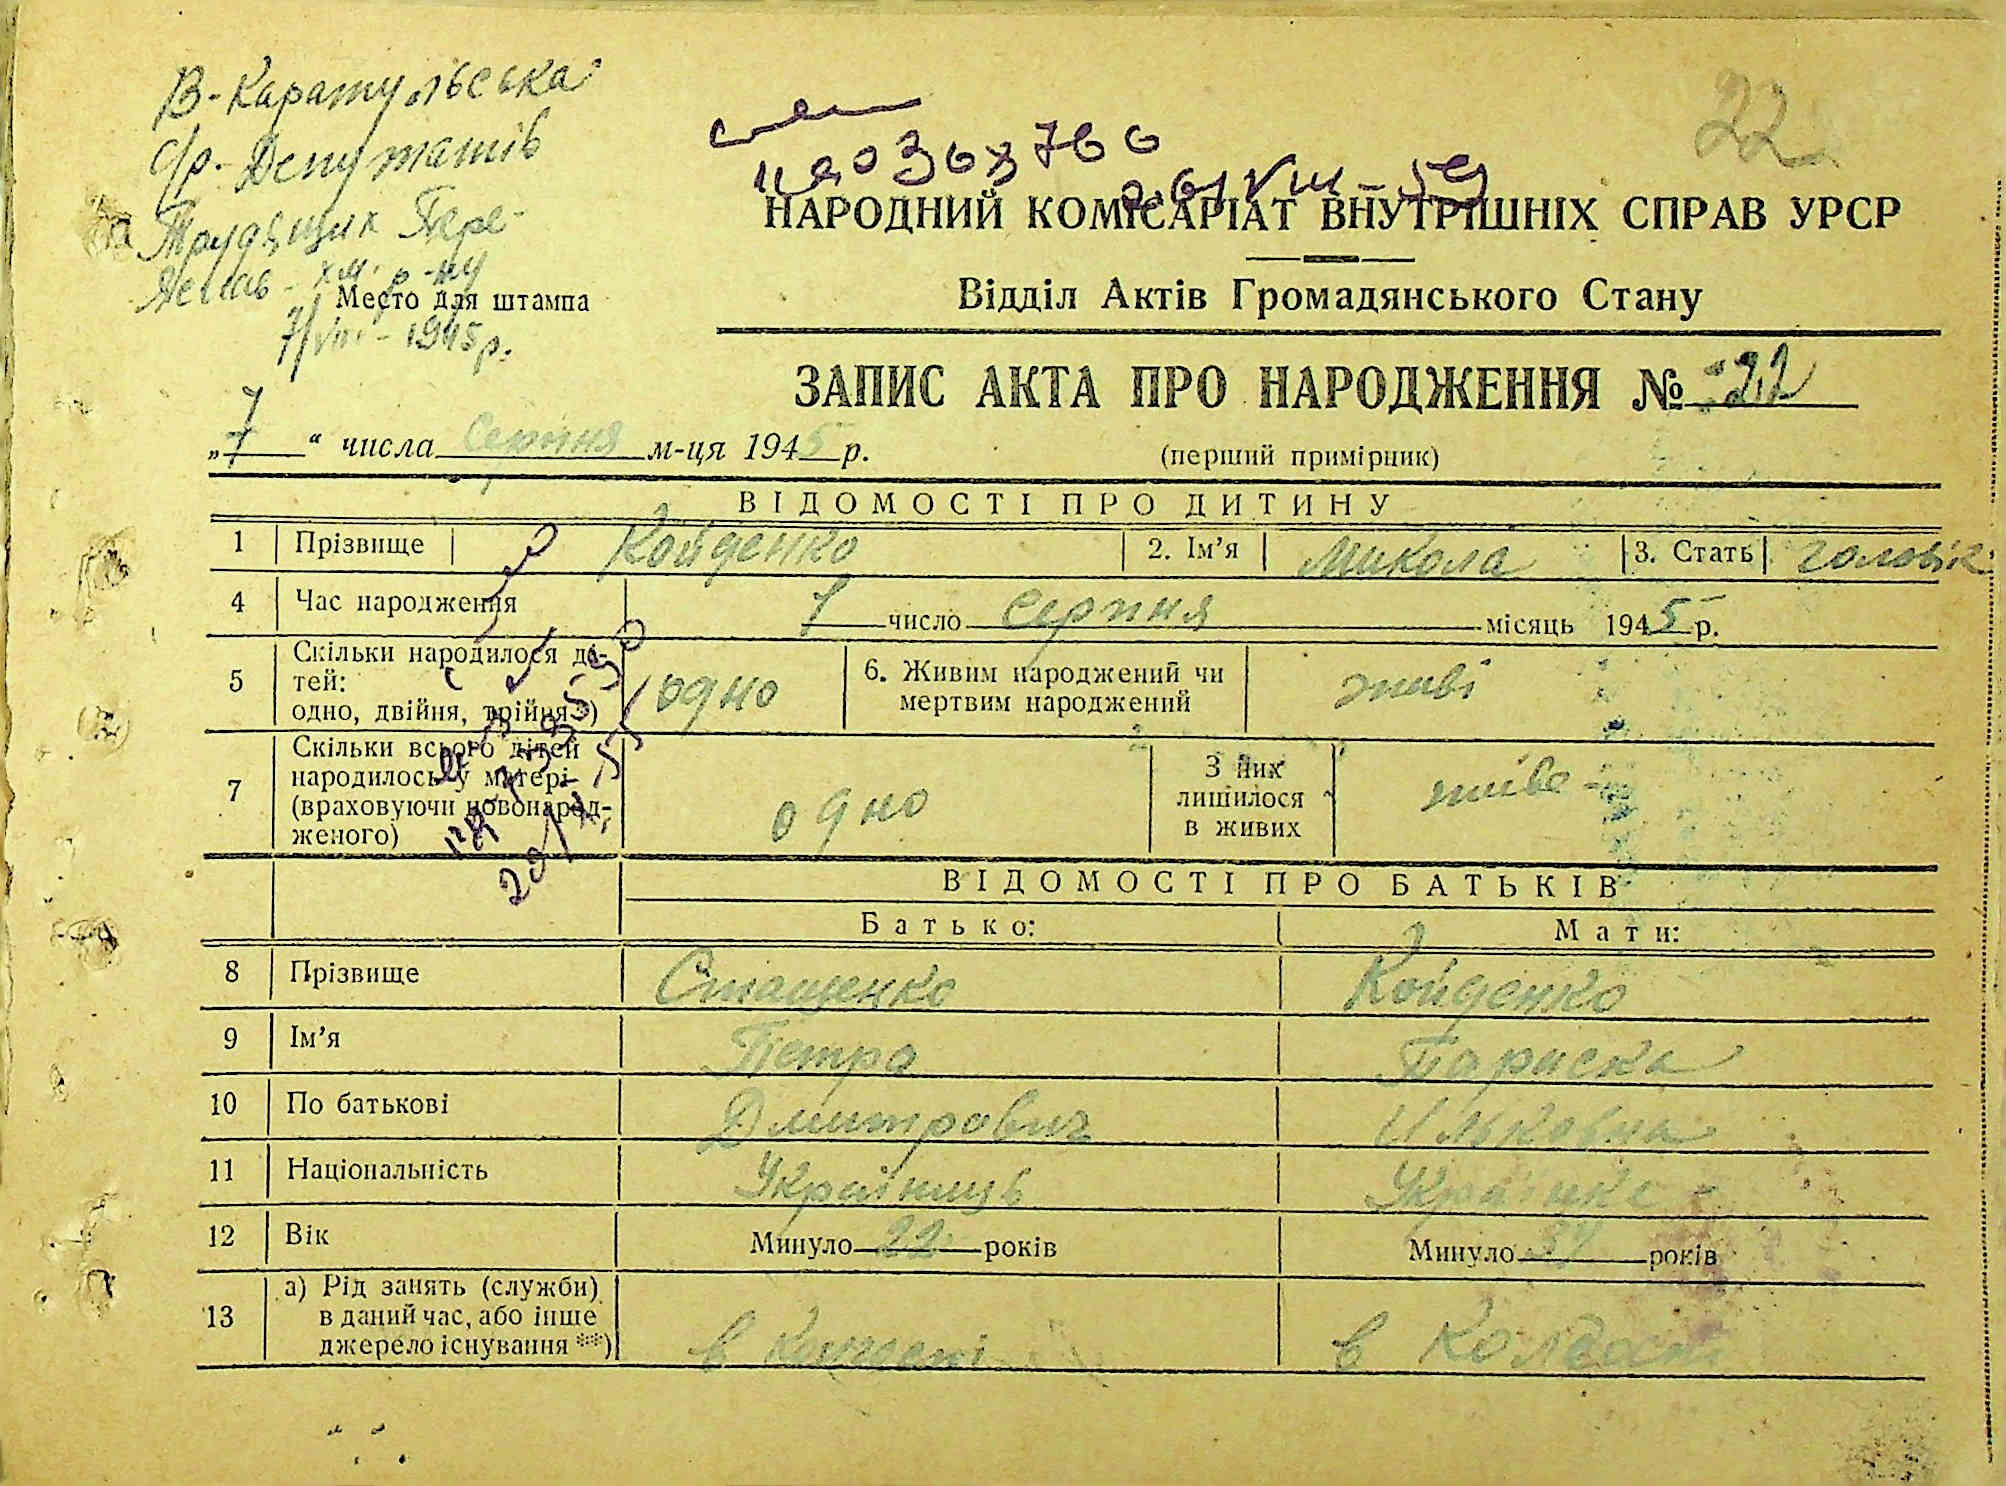 В-Каратульська
с/р. Депутатів
Трудящих Пере-
яслав-хм. р-ну
Место для штампа
7/VIII-1945р.
22
НАРОДНИЙ КОМІСАРІАТ ВНУТРІШНІХ СПРАВ УРСР
Відділ Актів Громадянського Стану
ЗАПИС АКТА ПРО НАРОДЖЕННЯ № 22
„7“ числа серпня м-ця 1945 р.
(перший примірник)
ВІДОМОСТІ ПРО ДИТИНУ
1 Прізвище Койденко 2. Ім'я Микола 3. Стать чоловік
4 Час народження 1 число серпня місяць 1945 р.
5 Скільки народилося ді-
тей:
одно, двійня, трійня*) одно 6. Живим народжений чи
мертвим народжений живі
7 Скільки всього дітей
народилось у матері
(враховуючи новонарод-
женого) одно З них
лишилося
в живих живе
ВІДОМОСТІ ПРО БАТЬКІВ
Батько: Мати:
8 Прізвище Стащенко Койденко
9 Ім'я Петро Параска
10 По батькові Дмитрович Ильковна
11 Національність Українець Українка
12 Вік Минуло 22 років Минуло років
13 а) Рід занять (служби)
в даний час, або інше
джерело існування **) в в Колгоспі